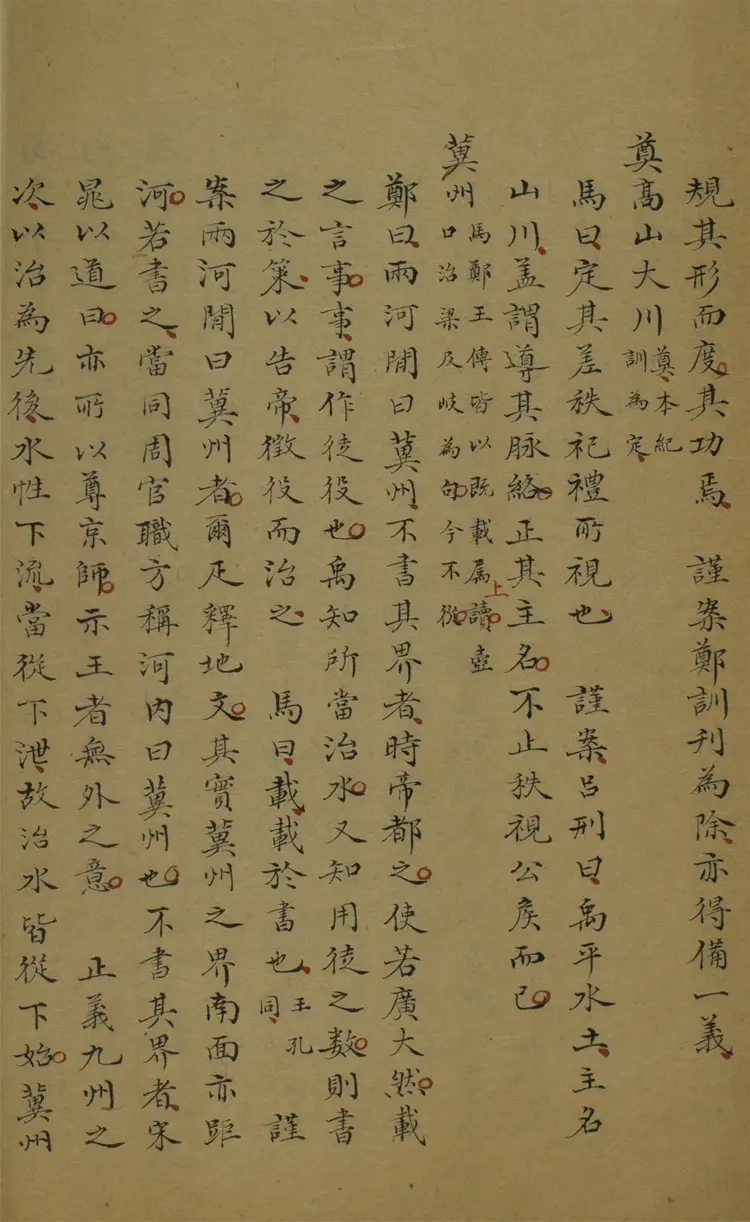 規其形而度其功焉　謹案鄭訓刊為除亦得備一義
奠高山大川奠本紀訓為定
馬曰定其差秩祀禮所視也　謹案呂刑曰禹平水土主名
山川盖謂導其脉絡正其主名不止秩視公侯而已
冀州馬鄭王傳皆以既載屬上讀壺口治梁及岐為句今不從
鄭曰兩河閒曰冀州不書其界者時帝都之使若廣大然載
之言事事謂作徒役也禹知所當治水又知用徒之数則書
之於策以告帝徵役而治之　馬曰載載於書也王孔同　謹
案兩河閒曰冀州者爾疋釋地文其實冀州之界南面亦距
河若書之當同周官職方稱河内曰冀州也不書其界者宋
晁以道曰亦所以尊京師示王者無外之意　正義九州之
次以治為先後水性下流當從下泄故治水皆從下始冀州